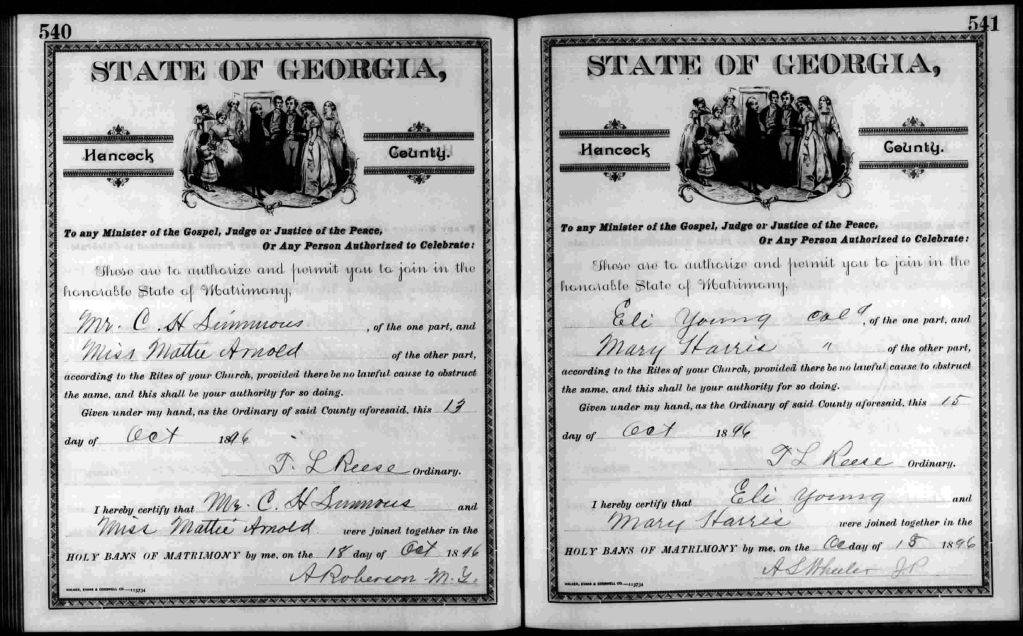 540
STATE OF GEORGIA,
Hancock County.
To any Minister of the Gospel, Judge or Justice of the Peace,
Or Any Person Authorized to Celebrate:
These are to authorize and permit you to join in the
honorable State of Matrimony,
Mr. C. H Simmons, of the one part, and
Miss Mattie Arnold of the other part,
according to the Rites of your Church, provided there be no lawful cause to obstruct
the same, and this shall be your authority for so doing.
Given under my hand, as the Ordinary of said County aforesaid, this 13
day of Oct 1896
T. L Reese Ordinary.
I hereby certify that Mr. C. H Simmons and
Miss Mattie Arnold were joined together in the
HOLY BANS OF MATRIMONY by me, on the 18 day of Oct 1896
A Roberson M. G.
WALKER, EVANS & COGSWELL CO.—113734
541
STATE OF GEORGIA,
Hancock County.
To any Minister of the Gospel, Judge or Justice of the Peace,
Or Any Person Authorized to Celebrate:
These are to authorize and permit you to join in the
honorable State of Matrimony,
Eli Young cold, of the one part, and
Mary Harris " of the other part,
according to the Rites of your Church, provided there be no lawful cause to obstruct
the same, and this shall be your authority for so doing.
Given under my hand, as the Ordinary of said County aforesaid, this 15
day of Oct 1896
T L Reese Ordinary.
I hereby certify that Eli Young and
Mary Harris were joined together in the
HOLY BANS OF MATRIMONY by me, on the Oc day of 15 1896
A S Wheeler J P
WALKER, EVANS & COGSWELL CO.—113734